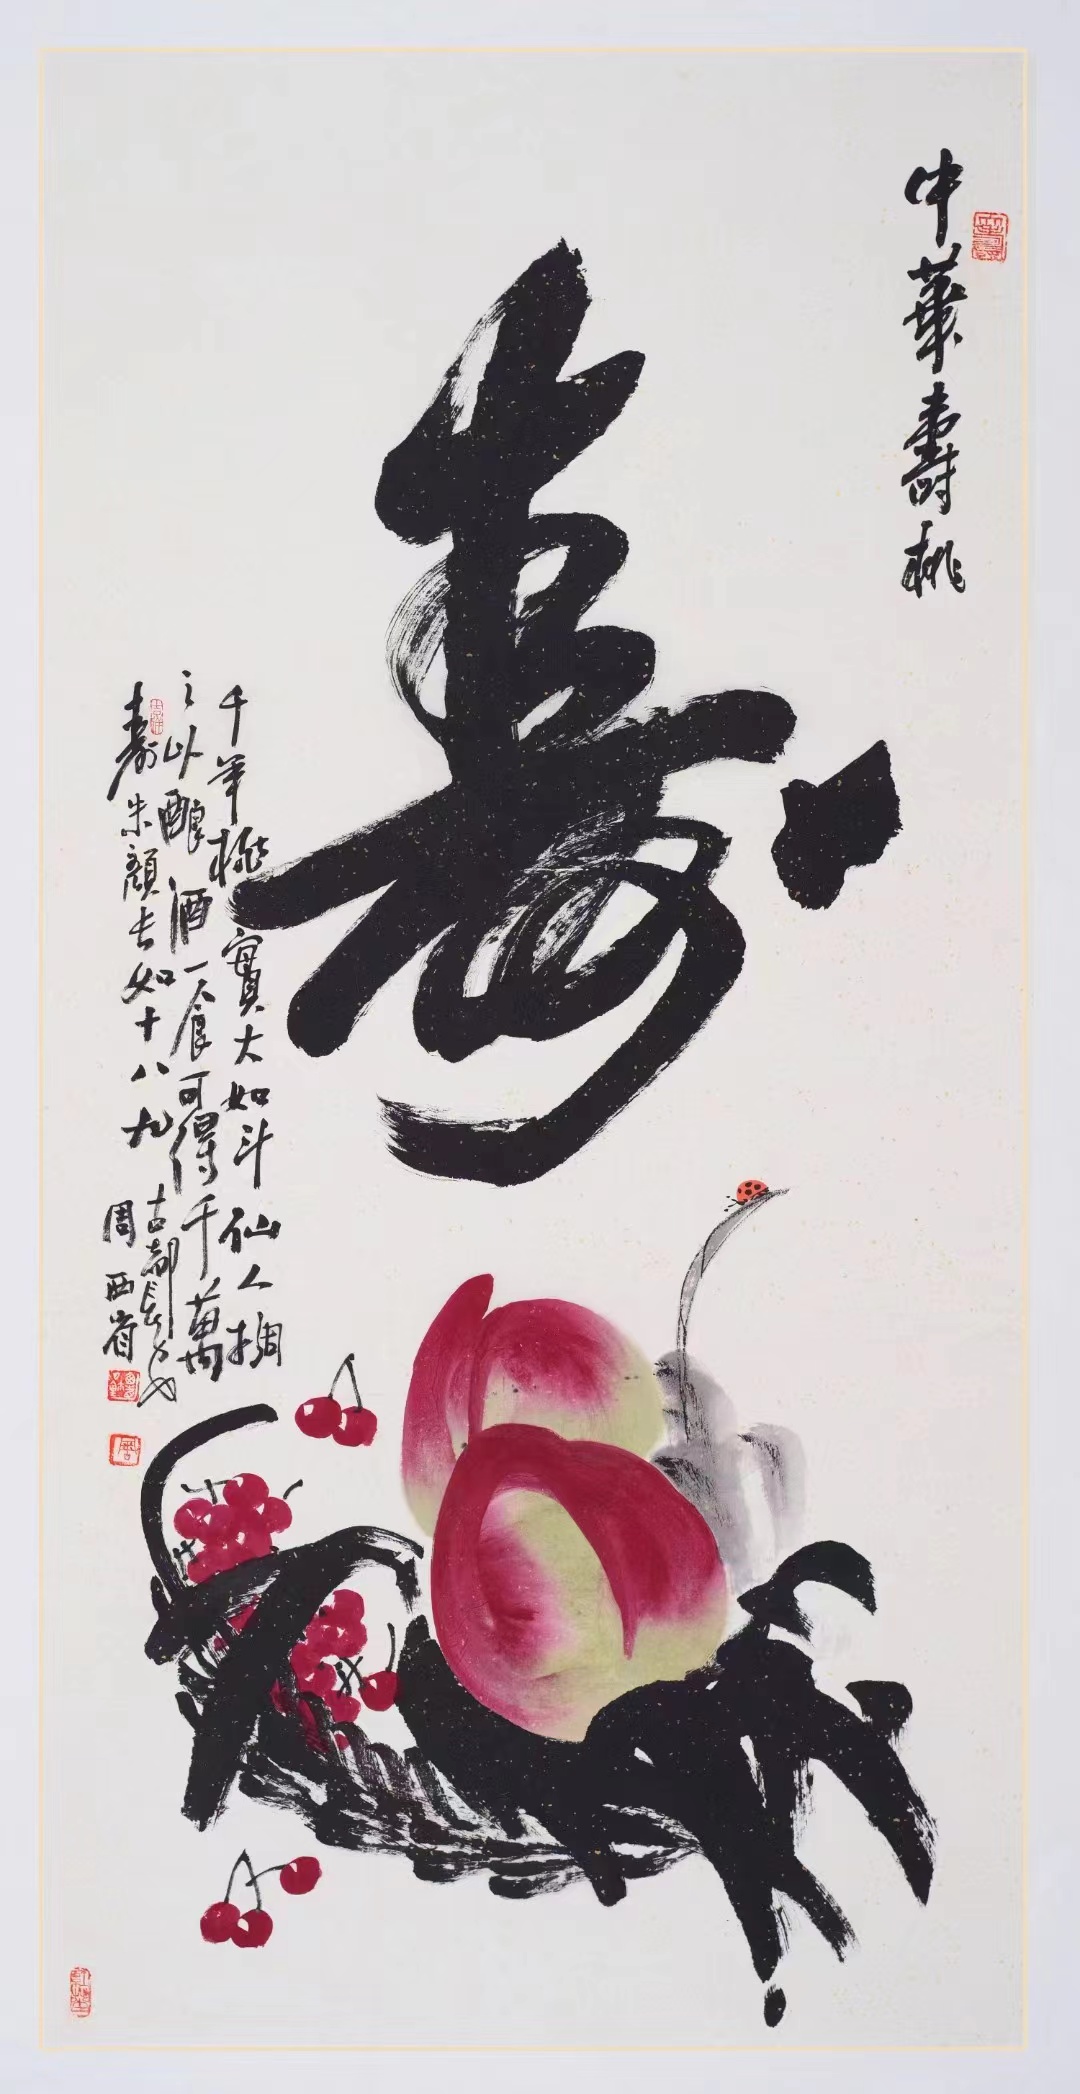 中華壽桃
寿
千年桃實大如斗仙人摘
之以釀酒一食可得千萬
寿朱顏长如十八九
古都長安
周西省